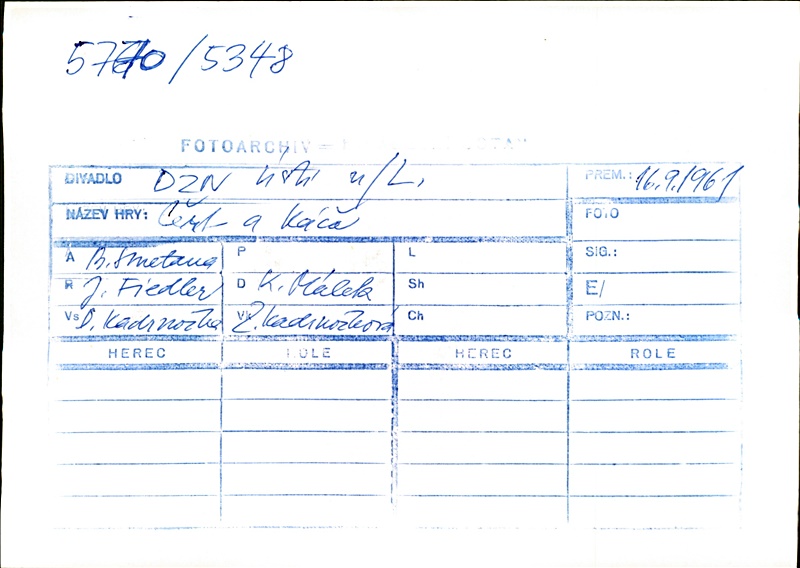 /5348
FOTOARCHIV –
DIVADLO DZN Ústí n/L. PREM.: 16.9.1961
NÁZEV HRY: Čert a Káča FOTO
A B. Smetana P L SIG.:
R J. Fiedler D K. Málek Sh E/
Vs D. Kadrnožka Vk Z. Kadrnožková Ch POZN.:
HEREC ROLE HEREC ROLE